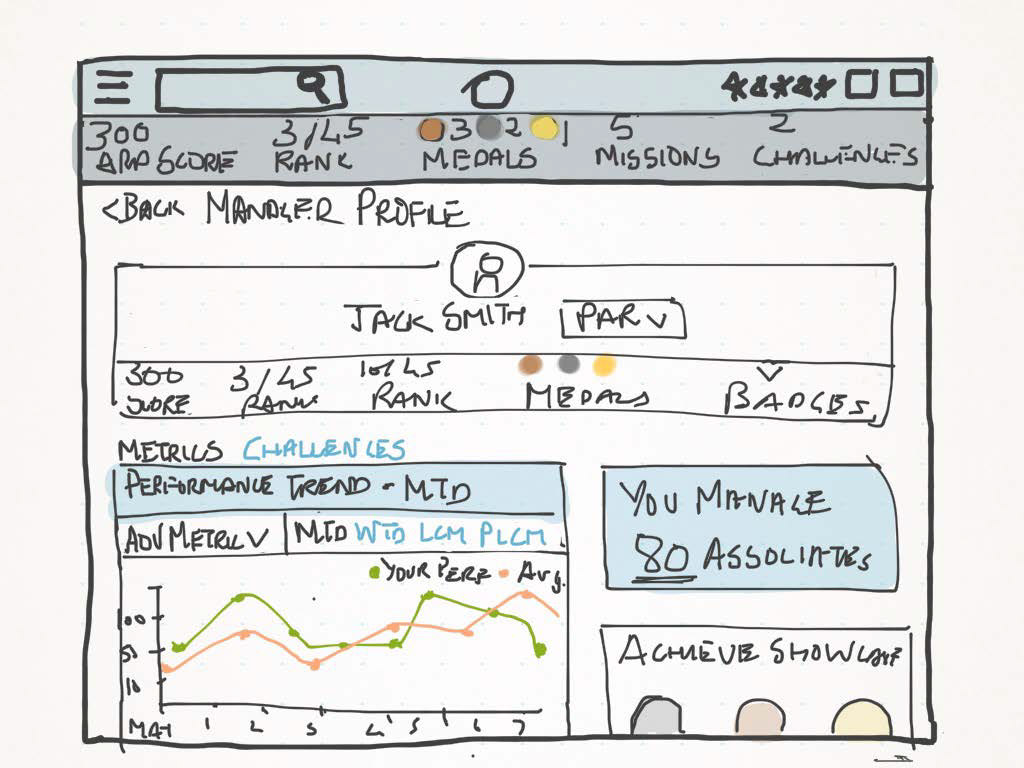 300 3/45 3 2 1 5 2
SCORE RANK MEDALS MISSIONS CHALLENGES
<BACK MANAGER PROFILE
JACK SMITH PAR
300 3/45 10/45
SCORE RANK RANK MEDALS BADGES
METRICS CHALLENGES
PERFORMANCE TREND - MTD
METRIC MTD WTD LCM PLCM
YOUR PERF Avg.
100
50
10
1 2 3 4 5 6 7
YOU MANAGE
80 ASSOCIATES
ACHIEVE SHOWCASE